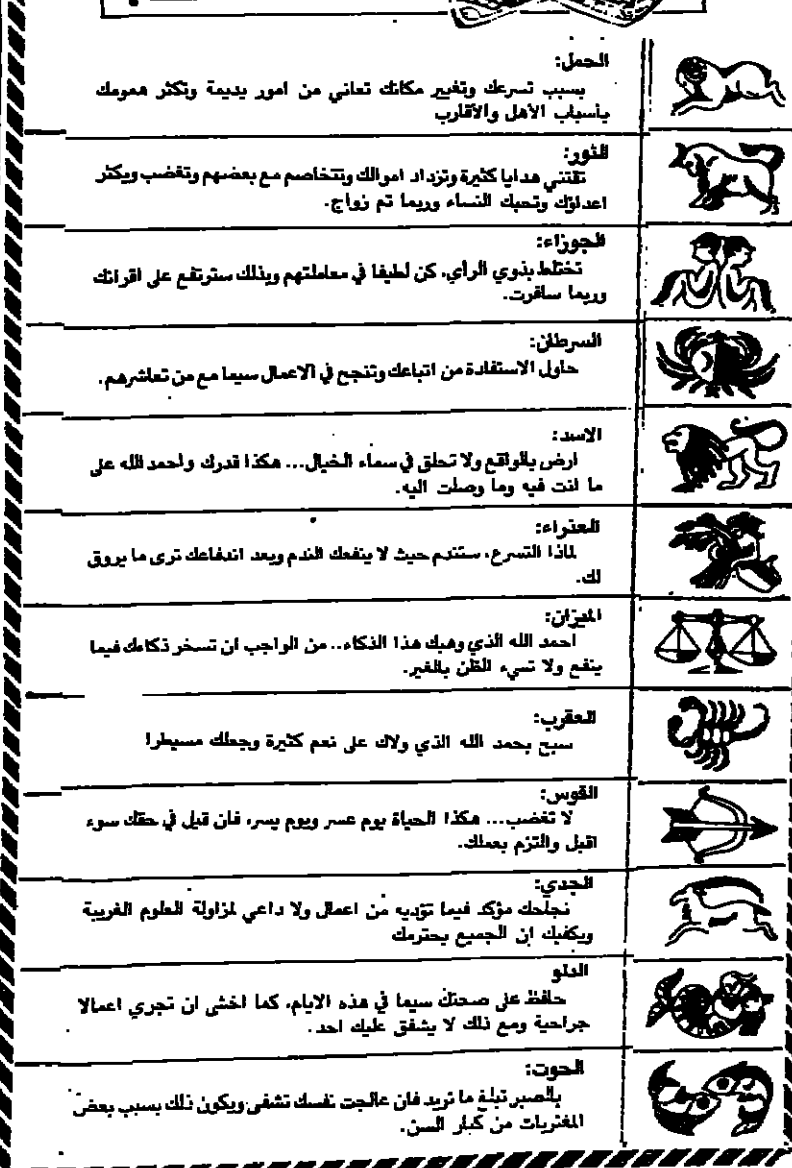 الحمل:
بسبب تسرعك وتغيير مكانك تعاني من امور بديمة وتكثر همومك
بأسباب الأهل والأقارب
الثور:
تقتني هدايا كثيرة وتزداد اموالك وتتخاصم مع بعضهم وتغضب ويكثر
اعداؤك وتحبك النساء وربما تم زواج.
الجوزاء:
تختلط بذوي الرأي، كن لطيفا في معاملتهم وبذلك سترتفع على اقرانك
وربما سافرت.
السرطان:
حاول الاستفادة من اتباعك وتنجح في الاعمال سيما مع من تعاشرهم.
الاسد:
ارض بالواقع ولا تحلق في سماء الخيال... هكذا قدرك واحمد الله على
ما انت فيه وما وصلت اليه.
العذراء:
لماذا التسرع، ستندم حيث لا ينفعك الندم وبعد اندفاعك ترى ما يروق
لك.
الميزان:
احمد الله الذي وهبك هذا الذكاء.. من الواجب ان تسخر ذكاءك فيما
ينفع ولا تسيء الظن بالغير.
العقرب:
سبح بحمد الله الذي ولاك على نعم كثيرة وجعلك مسيطرا
القوس:
لا تغضب... هكذا الحياة يوم عسر ويوم يسر، فان قيل في حقك سوء
اقبل والتزم بعملك.
الجدي:
نجاحك مؤكد فيما تؤديه من اعمال ولا داعي لمزاولة العلوم الغريبة
ويكفيك ان الجميع يحترمك
الدلو
حافظ على صحتك سيما في هذه الايام، كما اخشى ان تجري اعمالا
جراحية ومع ذلك لا يشفق عليك احد.
الحوت:
بالصبر تبلغ ما تريد فان عالجت نفسك تشفى ويكون ذلك بسبب بعض
المغتربات من كبار السن.